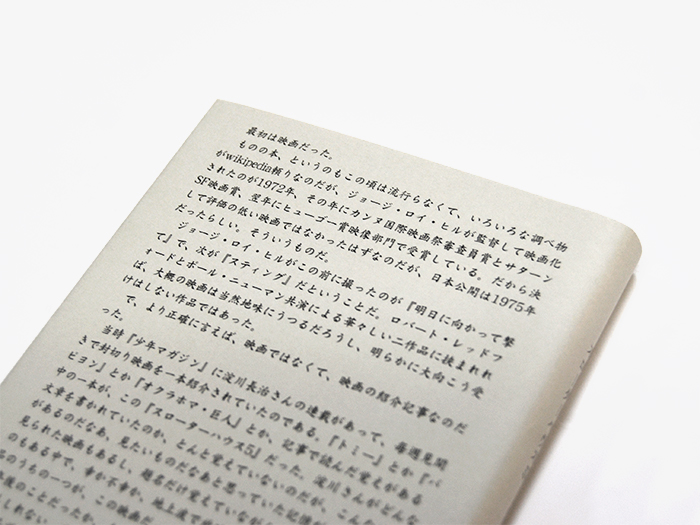 最初は映画だった。
ものの本、というのもこの頃は流行らなくて、いろいろな調べ物
がwikipedia頼りなのだが、ジョージ・ロイ・ヒルが監督して映画化
されたのが1972年、その年にカンヌ国際映画祭審査員賞とサターン
SF映画賞、翌年にヒューゴー賞映像部門で受賞している。だから決
して評価の低い映画ではなかったはずなのだが、日本公開は1975年
だったらしい。そういうものだ。
ジョージ・ロイ・ヒルがこの前に撮ったのが『明日に向かって撃
て』で、次が『スティング』だということだ。ロバート・レッドフ
ォードとポール・ニューマン共演による華々しい二作品に挟まれれ
ば、大概の映画は当然地味にうつるだろうし、明らかに大向こう受
けはしない作品ではあった。
で、より正確に言えば、映画ではなくて、映画の紹介記事なのだ
った。
当時『少年マガジン』に淀川長治さんの連載があって、毎週見開
きで封切り映画を一本紹介されていたのである。『トミー』とか『パ
ピヨン』とか『オクラホマ・巨人』とか、記事で読んだ覚えがある
中の一本が、この『スローターハウス5』だった。淀川さんがどんな
文章を書かれていたのか、とんと覚えていないのだが、こんな
があるのだなあ、見たいものだなあと思っていた記憶
見られた映画もあるし、題名だけ覚えていな
のもある中で、幸か不幸か、地上波で
品のうちの一つが、この映画だ
後のことだったか、
れない。